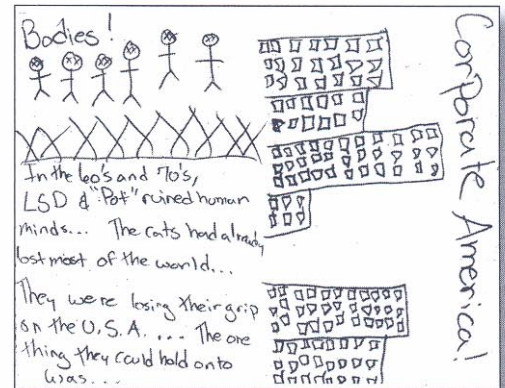 Bodies!
In the 60's and 70's,
LSD & "Pot" ruined human
minds... The cats had already
lost most of the world...
They were losing their grip
on the U.S.A. ... The one
thing they could hold onto
was...
Corporate America!